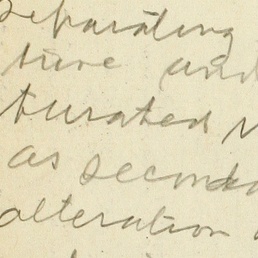 separating
ture and
turated
as second
alteration